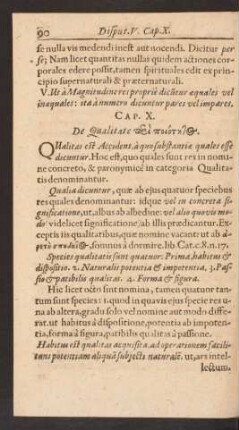 90 Disput. V. Cap. X.
se nulla vis medendi inest aut nocendi. Dicitur per
se; Nam licet quantitas nullas quidem actiones cor-
porales edere possit, tamen spirituales edit ex prin-
cipio supernaturali & præternaturali.
V. Ut à Magnitudine res propriè dicūtur æquales vel
inæquales: ita à numero dicuntur pares vel impares.
CAP. X.
De Qualitate
QUalitas est Accidens, à quo substantiæ quales esse
dicuntur. Hoc est, quo quales sunt res in nomine
concreto, & paronymicè in categoria Qualita-
tis denominantur.
Qualia dicuntur, quæ ab ejus quatuor speciebus
res quales denominantur: idque vel in concreta si-
gnificatione, ut, albus ab albedine: vel alio quovis mo-
do videlicet significatione, ab illis prædicantur. Ex-
ceptis iis qualitatibus, quæ nomine vacant: ut ab
somnus à dormire. lib. Cat. c. 8. n. 17.
Species qualitatis sunt quatuor: Prima, habitus &
dispositio. 2. Naturalis potentia & impotentia. 3. Pas-
sio & patibilis qualitas. 4. Forma & figura.
Hic licet octo sint nomina, tamen quatuor tan-
tum sunt species: 1. quod in quavis ejus specie res u-
na ab altera, gradu solo vel nomine aut modo diffe-
rat. ut habitus à dispositione, potentia ab impoten-
tia, forma à figura, patibilis qualitas à passione.
Habitus est qualitas acquisita ad operationem facili-
tans potentiam aliquā subjecti naturalē. ut, ars intel-
lectum.